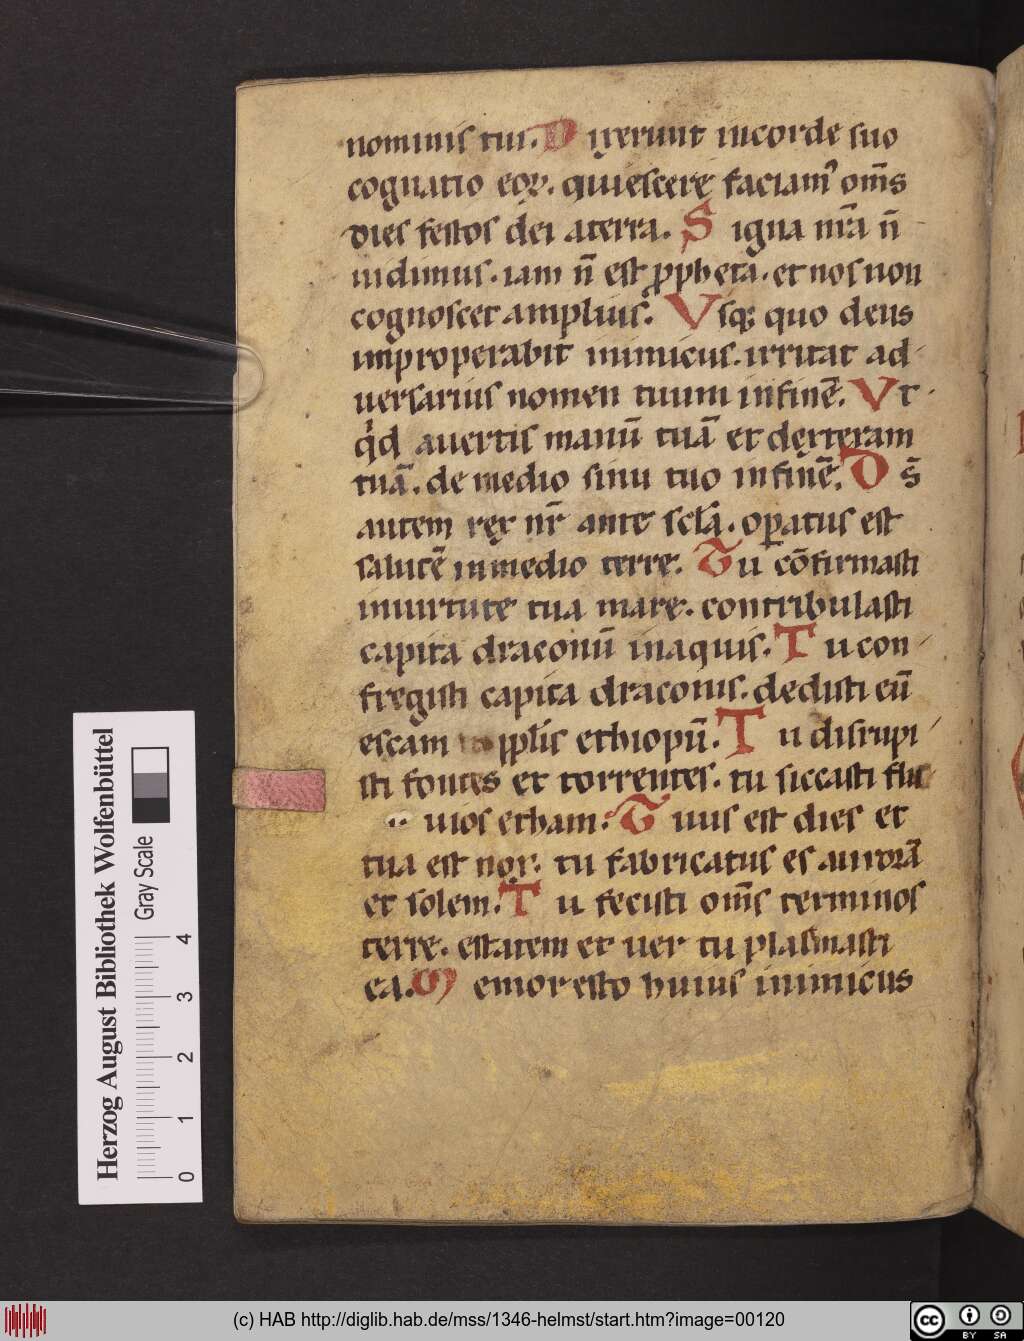 nominis tui. Dixerunt in corde suo
cognatio eoꝝ. quiescere faciam᷒ om̅s
dies festos dei a terra. Signa nr̅a n̅
uidimus. iam n̅ est ꝓpheta. et nos non
cognoscet amplius. Vsq; quo deus
improperabit inimicus. irritat ad-
uersarius nomen tuum in fine̅. Vt
qͥd auertis manu̅ tua̅ et dexteram
tua̅. de medio sinu tuo in fine̅. Ds̅
autem rex nr̅ ante scl̅a. oꝑatus est
salute̅ in medio terre. Tu co̅firmasti
in uirtute tua mare. contribulasti
capita draconu̅ in aquis. Tu con-
fregisti capita draconis. dedisti eu̅
escam ppl̅is ethiopu̅. Tu disrupi-
sti fontes et torrentes. tu siccasti flu
uios etham. Tuus est dies et
tua est nox. tu fabricatus es aurora̅
et solem. Tu fecisti om̅s terminos
terre. estatem et uer tu plasmasti
ea. Memor esto huius inimicus
Herzog August Bibliothek Wolfenbüttel
Gray Scale
0 1 2 3 4
(c) HAB http://diglib.hab.de/mss/1346-helmst/start.htm?image=00120
cc BY SA